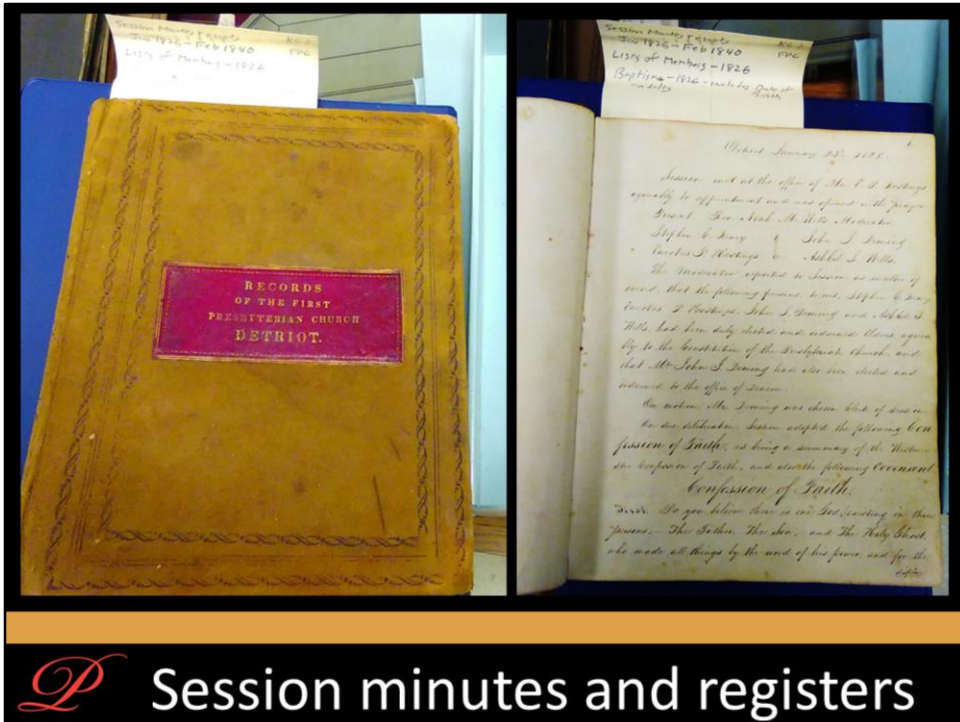 Session Minutes & Registers
Jan 1826 - Feb 1840
Lists of Members - 1826
RG 2
FPC
RECORDS
OF THE FIRST
PRESBYTERIAN CHURCH
DETRIOT.
Session Minutes & Registers
Jan 1826 - Feb 1840
Lists of Members - 1826
Baptisms - 1826 - includes Date of
Birth
RG 2
FPC
Detroit January 23 1825.
Session met at the office of Mr. E. P. Hastings
agreeably to appointment and was opened with prayer
Present Rev Noah M. Wells Moderator
Stephen C. Henry John J. Deming
Eurotas P. Hastings Ashbel S. Wells.
The Moderator reported to Session as matter of
record, that the following persons, to wit, Stephen C. Henry
Eurotas P. Hastings, John J. Deming and Ashbel S.
Wells, had been duly elected and ordained Elders agreea
bly to the Constitution of the Presbyterian Church, and
that Mr John J. Deming had also been elected and
ordained to the office of Deacon.
On motion Mr. Deming was chosen Clerk of Session
On due deliberation Session adopted the following Con
fession of Faith, as being a summary of the Westmin
ster Confession of Faith, and also the following Covenant.
Confession of Faith.
First. Do you believe there is one God, existing in three
persons, The Father, The Son, and The Holy Ghost,
who made all things by the word of his power, and for the
P
Session minutes and registers